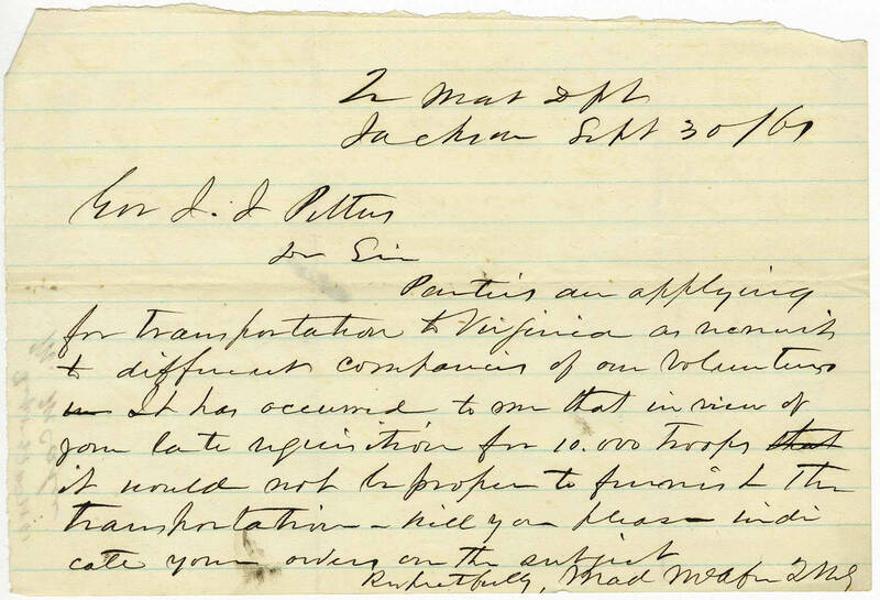 Qr Mas Dpt
Jackson Sept 30/61
Gov J. J Pettus
Dr Sir
Parties are applying
for transportation to Virginia as recruits
to different companies of our Volunteers
It has occurred to me that in view of
your late requisition for 10.000 Troops that
it would not be proper to furnish the
transportation - Will you please indi
cate your orders on the subject
Respectfully, Mad McAfee Q M G